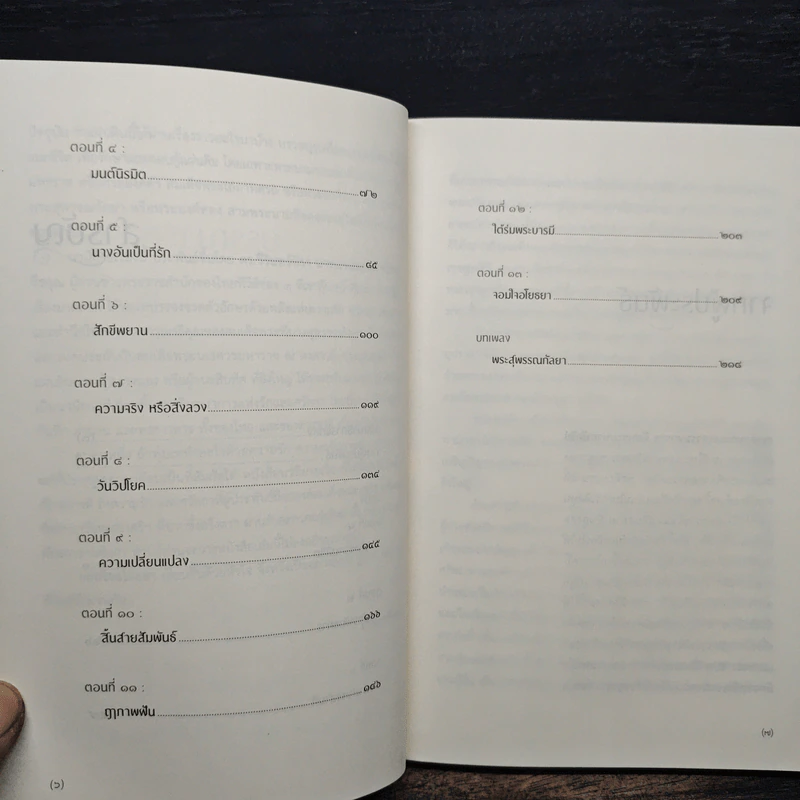 ตอนที่ ๔ :
มนต์นิรมิต ๗๒
ตอนที่ ๕ :
นางอันเป็นที่รัก ๘๕
ตอนที่ ๖ :
สักขีพยาน ๑๐๐
ตอนที่ ๗ :
ความจริง หรือสิ่งลวง ๑๑๙
ตอนที่ ๘ :
วันวิปโยค ๑๓๔
ตอนที่ ๙ :
ความเปลี่ยนแปลง ๑๔๕
ตอนที่ ๑๐ :
สิ้นสายสัมพันธ์ ๑๖๖
ตอนที่ ๑๑ :
ฤๅภาพฝัน
(๖)
ตอนที่ ๑๒ :
ใต้ร่มพระบารมี ๒๐๓
ตอนที่ ๑๓ :
จอมใจอโยธยา ๒๐๙
บทเพลง
พระสุพรรณกัลยา ๒๑๔
(๗)